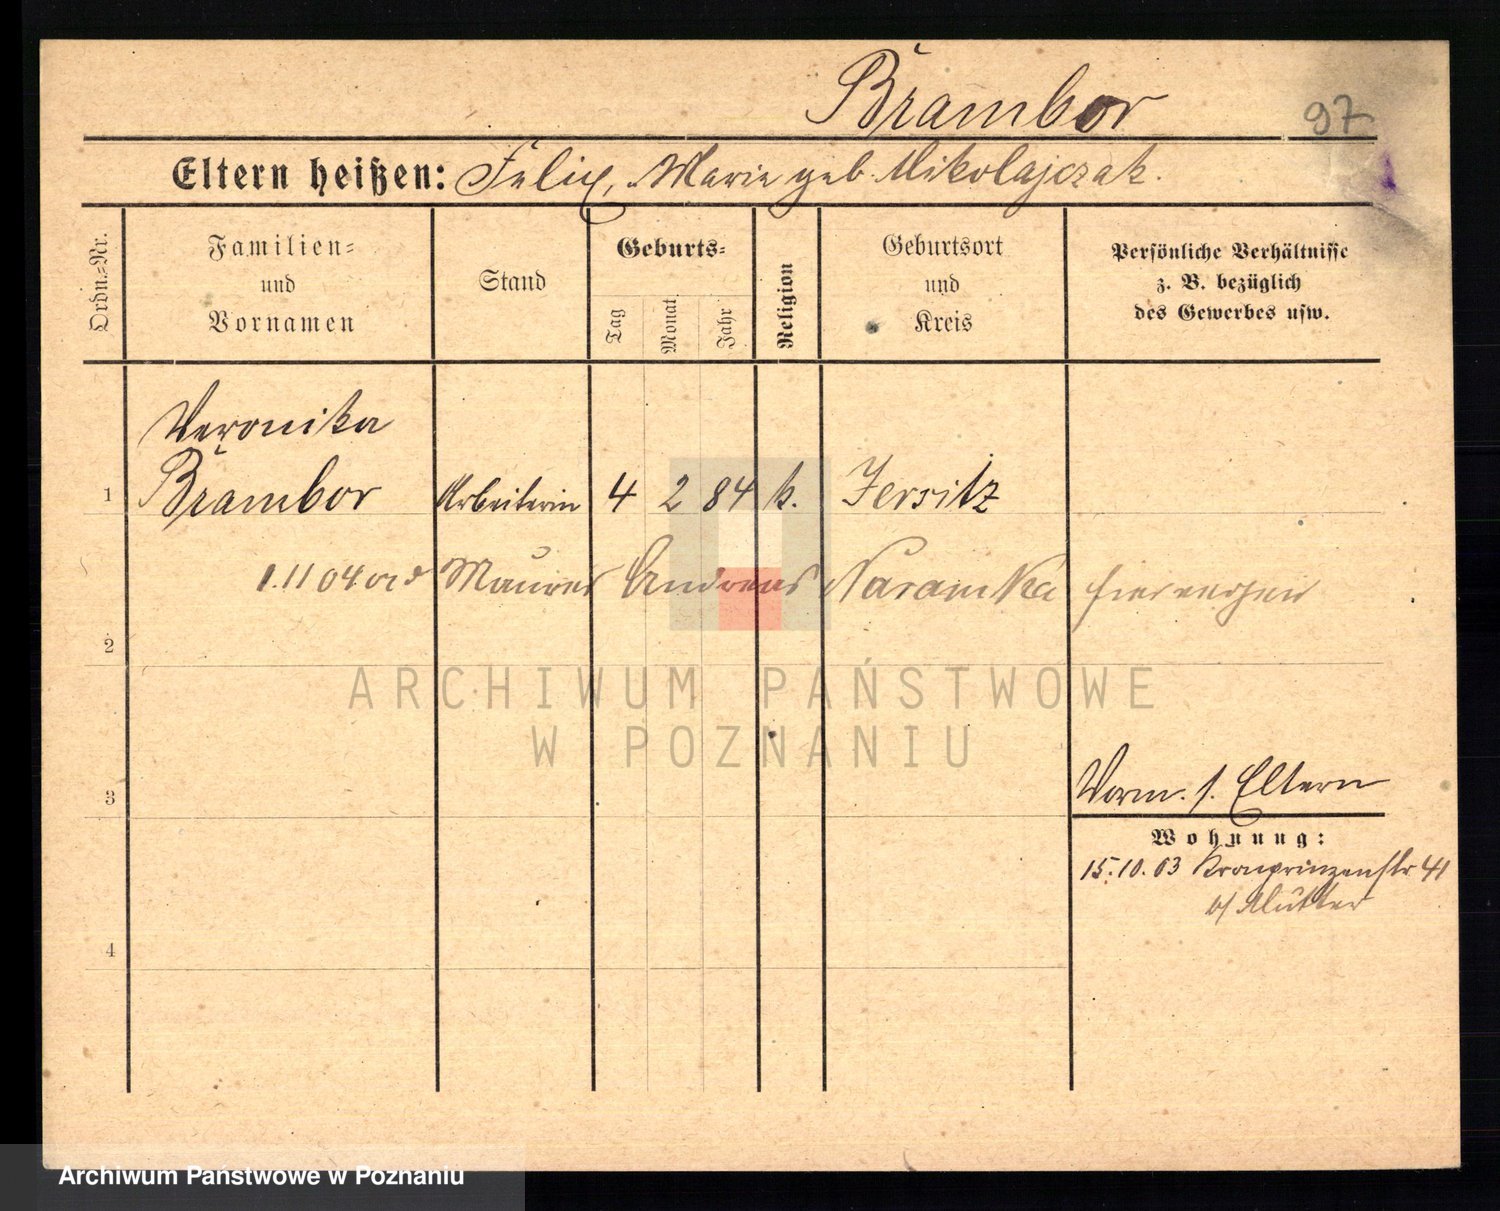 Brambor
97
Eltern heißen: Felix, Marie geb. Mikolajczak.
Ordn.-Nr.
Familien-
und
Vornamen
Stand
Geburts-
Tag
Monat
Jahr
Religion
Geburtsort
und
Kreis
Persönliche Verhältnisse
z. B. bezüglich
des Gewerbes usw.
Veronika
1 Brambor Arbeiterin 4 2 84 k. Jersitz
1.11 04 Maurer Andreas
2
ARCHIWUM PAŃSTWOWE
W POZNANIU
3
Vorm. s. Eltern
Wohnung:
15.10.03 Kronprinzenstr 41
b/ Mutter
4
Archiwum Państwowe w Poznaniu